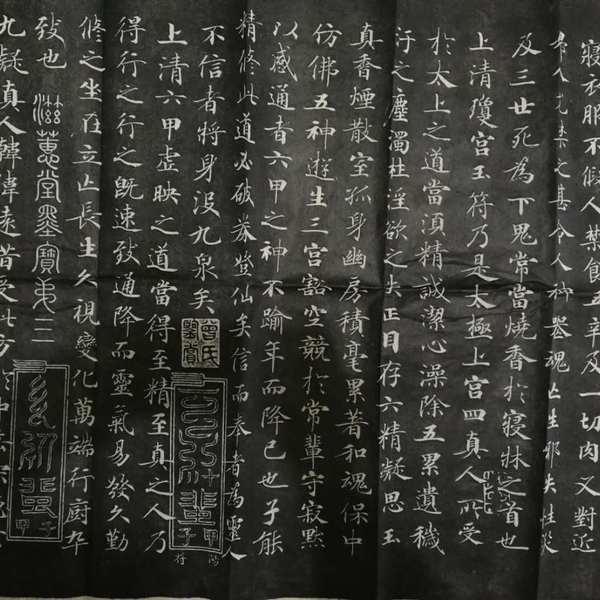 寢衣服不假人禁食五辛及一切肉又對近
婦人尤禁之甚令人神喪魂亡生邪失性災
及三世死為下鬼常當燒香於寢牀之首也
上清瓊宮玉符乃是太極上宮四真人所受
於太上之道當須精誠潔心澡除五累遺穢
汙之塵濁杜淫欲之失正目存六精凝思玉
真香煙散室孤身幽房積毫累著和魂保中
仿佛五神遊生三宮豁空競於常輩守寂默
以感通者六甲之神不踰年而降已也子能
精修此道必破券登仙矣信而奉者為靈人
不信者將身沒九泉矣
曾氏
甲子
上清六甲虛映之道當得至精至真之人乃
得行之行之既速致通降而靈氣易發久勤
修之坐在立亡長生久視變化萬端行廚卒
致也
滋蕙堂墨寶弟二
甲子
九疑真人韓偉遠昔受此方於中岳宋